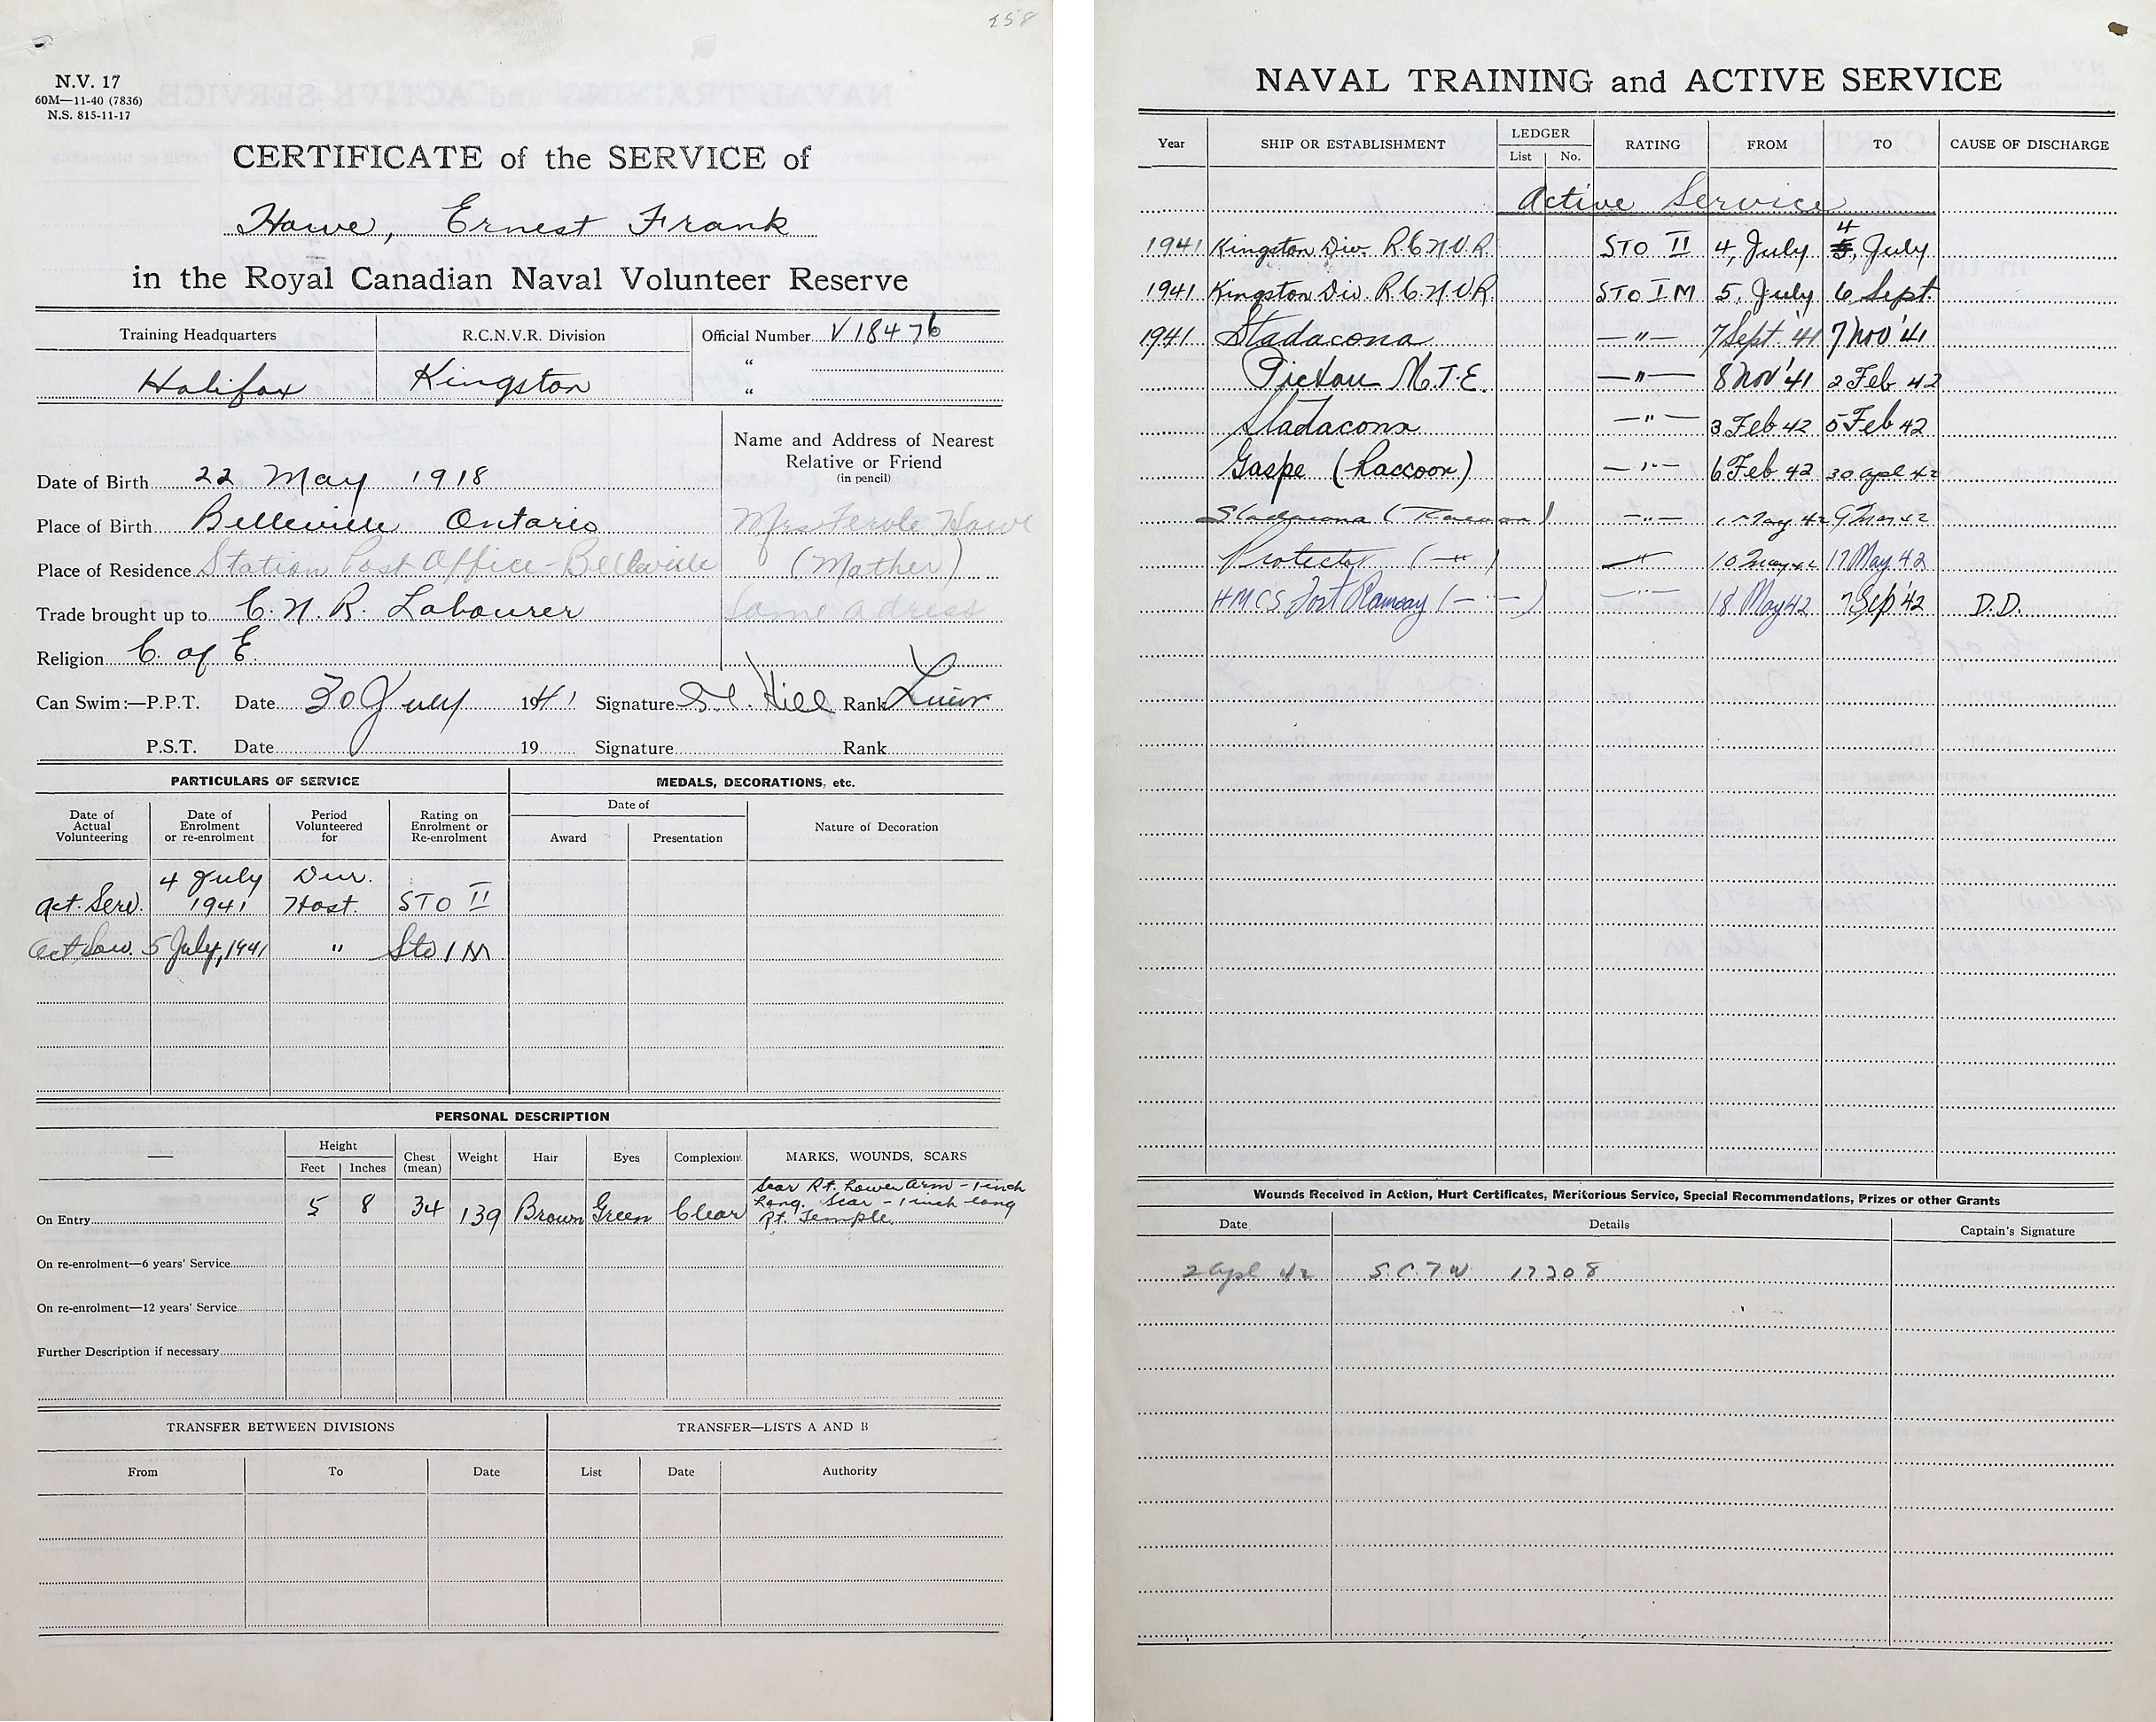 258
N.V. 17
60M—11-40 (7836)
N.S. 815-11-17
CERTIFICATE of the SERVICE of
Howe, Ernest Frank
in the Royal Canadian Naval Volunteer Reserve
Training Headquarters R.C.N.V.R. Division Official Number V18476
"
Halifax Kingston "
Name and Address of Nearest
Relative or Friend
(in pencil)
Date of Birth 22 May 1918
Place of Birth Belleville Ontario Mrs Howe
Place of Residence Station Post Office - Belleville (Mother)
Trade brought up to C.N.R. Labourer Same adress
Religion C of E
Can Swim:—P.P.T. Date 30 July 1941 Signature Hill Rank Lieut
P.S.T. Date 19 Signature Rank
PARTICULARS OF SERVICE MEDALS, DECORATIONS, etc.
Date of Actual Volunteering Date of Enrolment or re-enrolment Period Volunteered for Rating on Enrolment or Re-enrolment Date of Award Presentation Nature of Decoration
4 July Dur.
Act. Serv. 1941 Host. STO II
Act. Serv. 5 July, 1941 " Sto 1 M
PERSONAL DESCRIPTION
— Height Feet Inches Chest (mean) Weight Hair Eyes Complexion MARKS, WOUNDS, SCARS
Scar Rt. Lower Arm - 1 inch
Long. Scar - 1 inch long
On Entry 5 8 34 139 Brown Green Clear Rt. Temple
On re-enrolment—6 years' Service
On re-enrolment—12 years' Service
Further Description if necessary
TRANSFER BETWEEN DIVISIONS TRANSFER—LISTS A AND B
From To Date List Date Authority
NAVAL TRAINING and ACTIVE SERVICE
Year SHIP OR ESTABLISHMENT LEDGER List No. RATING FROM TO CAUSE OF DISCHARGE
Active Service
1941 Kingston Div. R.C.N.V.R. STO II 4, July 4 July
1941 Kingston Div. R.C.N.V.R. STO I M 5, July 6 Sept.
1941 Stadacona —"— 7 Sept. '41 7 Nov '41
Pictou M.T.E. —"— 8 Nov '41 2 Feb 42
Stadacona —"— 3 Feb 42 5 Feb 42
Gaspe (Raccoon) —"— 6 Feb 42 30 Apl 42
Stadacona (Raccoon) —"— 1 May 42 9 May 42
Protector (—"—) —"— 10 May 42 17 May 42
HMCS Fort Ramsay (—"—) —"— 18 May 42 7 Sep '42 D.D.
Wounds Received in Action, Hurt Certificates, Meritorious Service, Special Recommendations, Prizes or other Grants
Date Details Captain's Signature
2 Apl 42 S.C.7W 17208